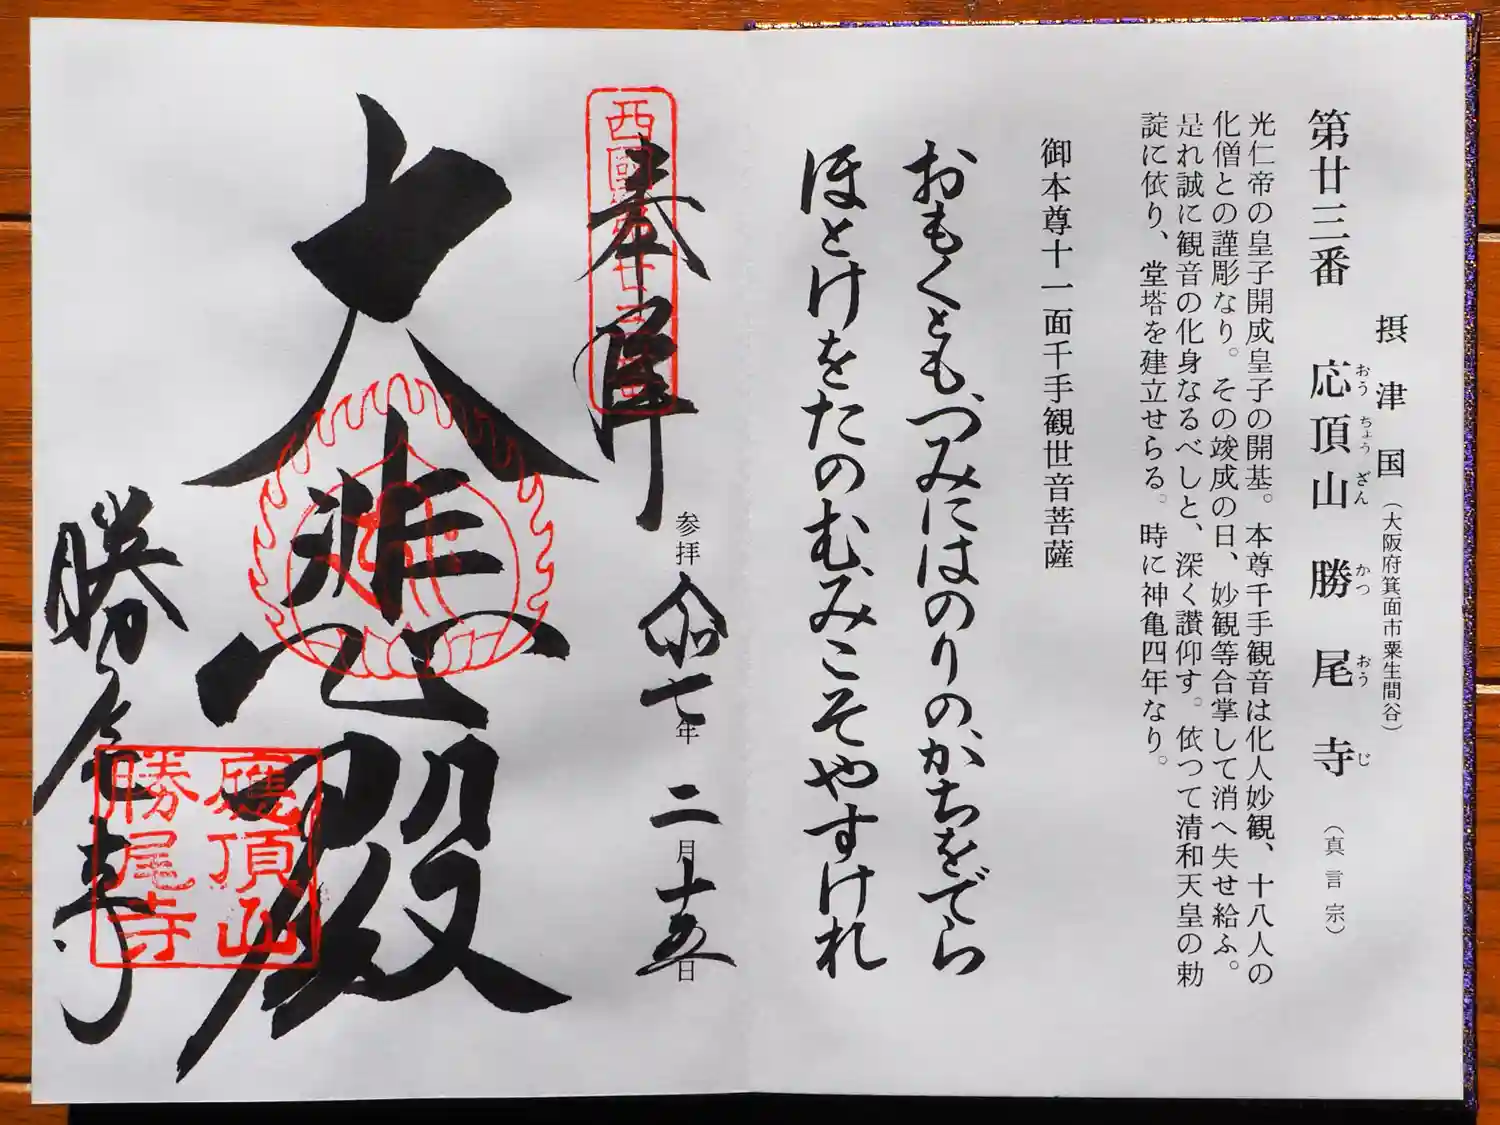 摂津国（大阪府箕面市粟生間谷）
第廿三番 応頂山 勝尾寺（真言宗）
おうちょうざん かつおうじ
光仁帝の皇子開成皇子の開基。本尊千手観音は化人妙観、十八人の
化僧との謹彫なり。その竣成の日、妙観等合掌して消へ失せ給ふ。
是れ誠に観音の化身なるべしと、深く讃仰す。依つて清和天皇の勅
諚に依り、堂塔を建立せらる。時に神亀四年なり。
御本尊十一面千手観世音菩薩
おもくとも、つみにはのりの、かちをでら
ほとけをたのむ、みこそやすけれ
奉拝
西國第廿三番
参拝 令和七年 二月十五日
大悲殿
勝尾寺
應頂山
勝尾寺